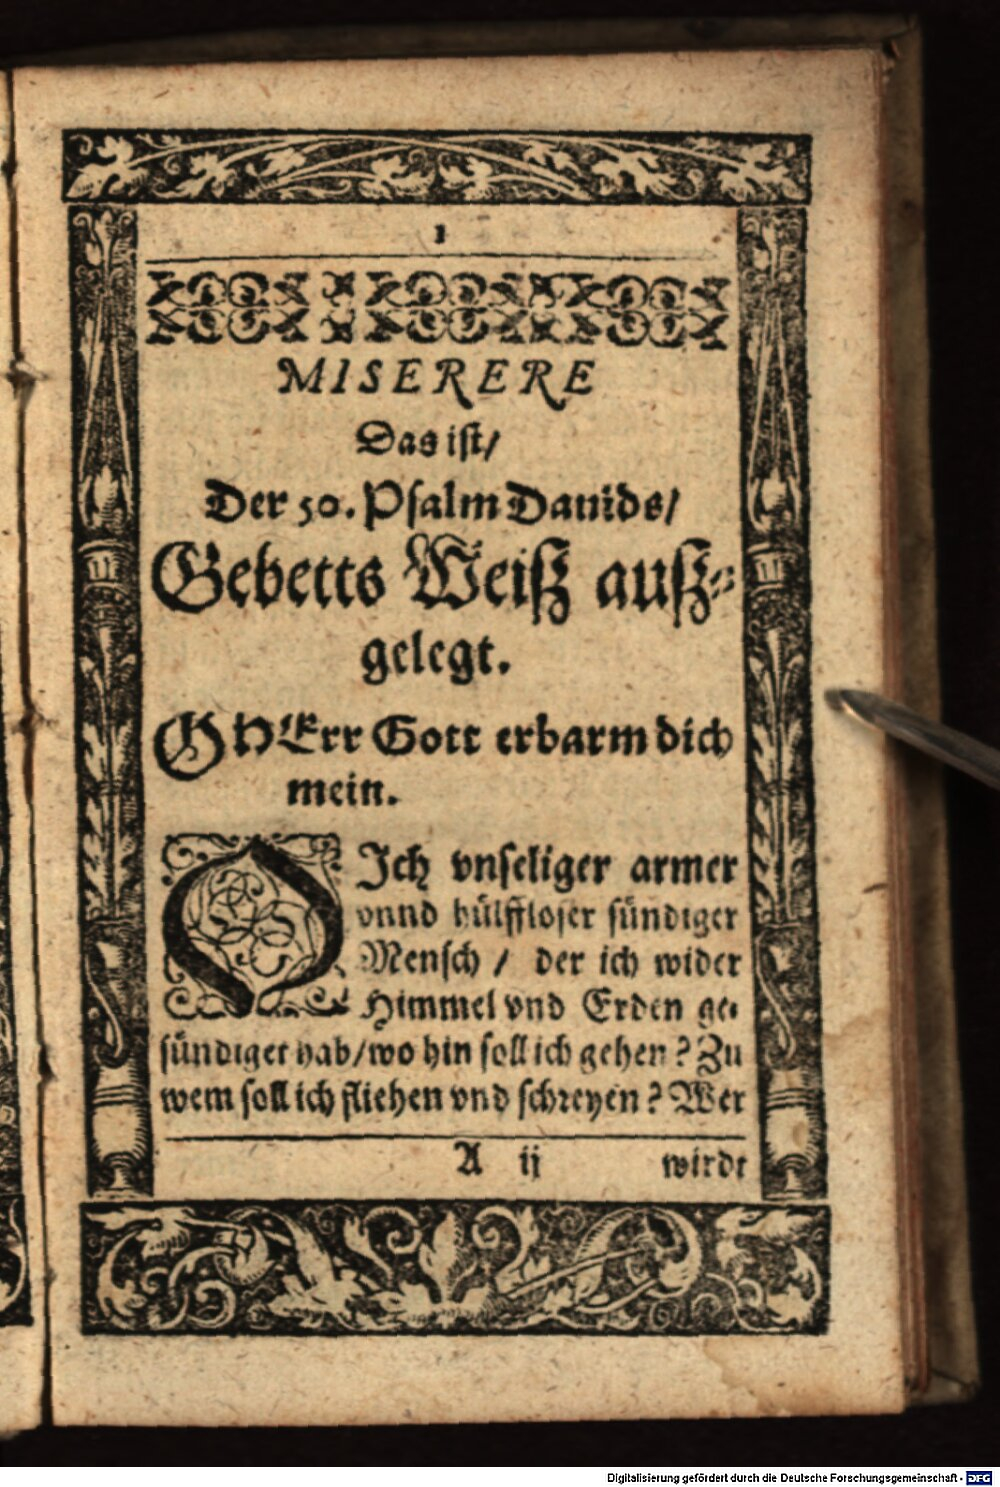 1
MISERERE
Das ist/
Der 50. Psalm Dauids/
Gebetts Weiß auß-
gelegt.
O HErr Gott erbarm dich
mein.
OJch vnseliger armer
vnnd hülffloser sündiger
Mensch / der ich wider
Himmel vnd Erden ge-
sündiget hab/wo hin soll ich gehen? Zu
wem soll ich fliehen vnd schreyen? Wer
A ij wirdt
Digitalisierung gefördert durch die Deutsche Forschungsgemeinschaft - DFG